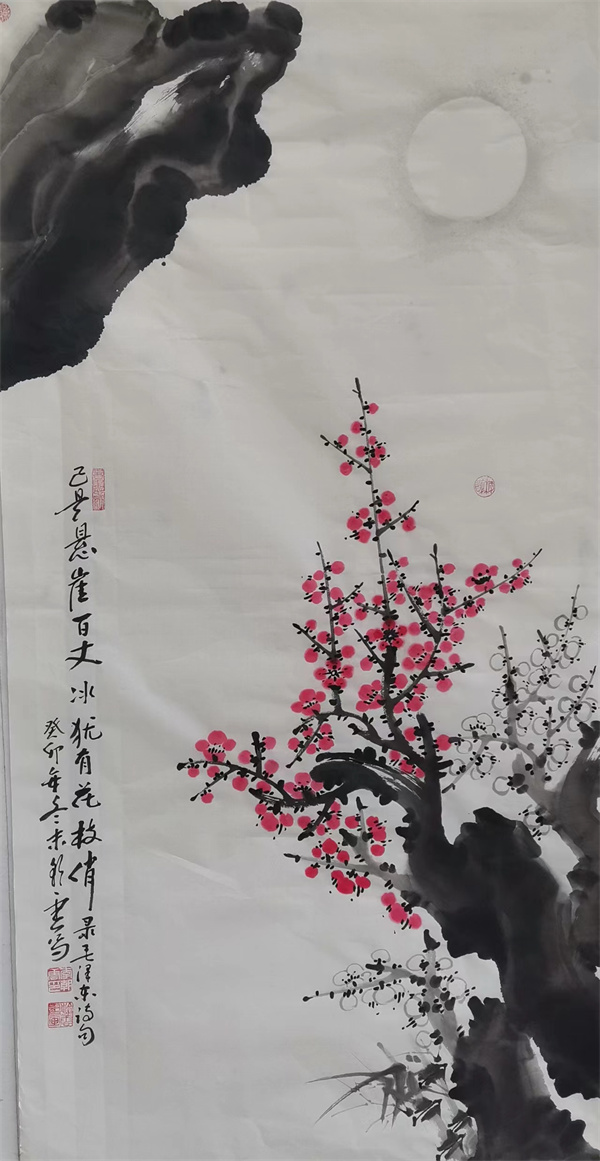 已是悬崖百丈冰犹有花枝俏 录毛泽东诗句
癸卯年冬末